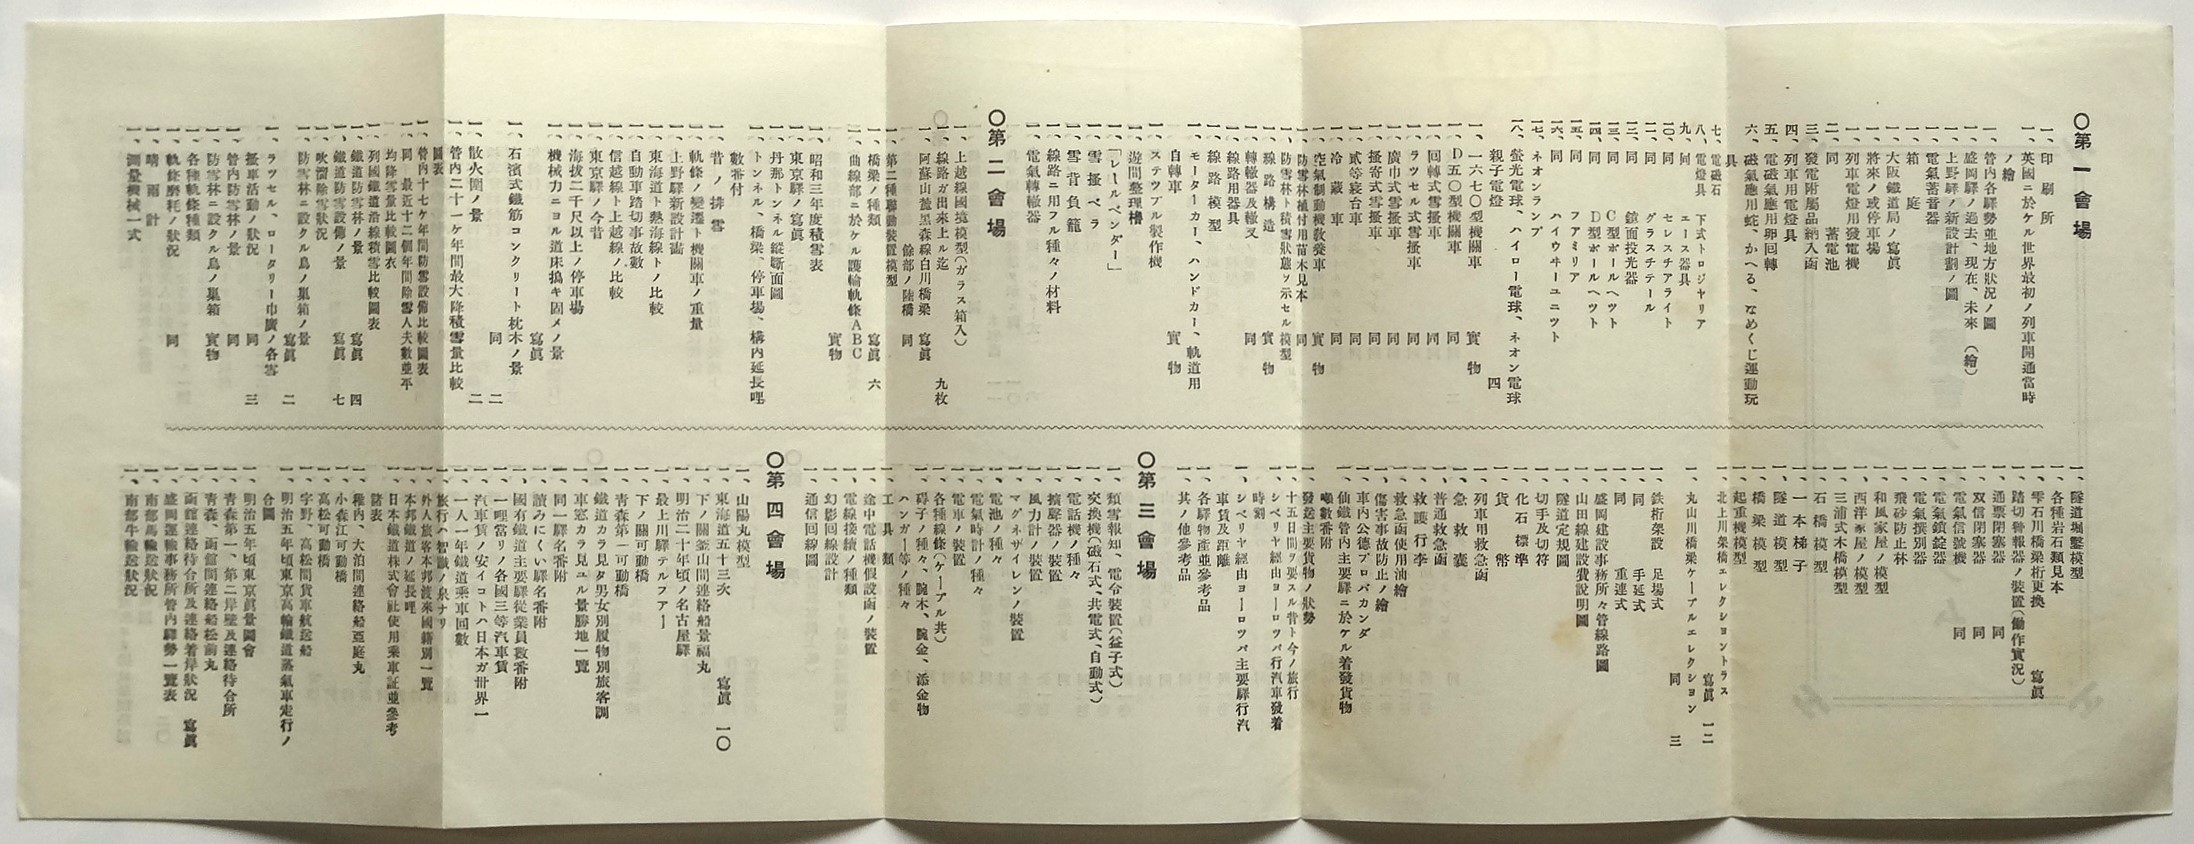 〇第一會場
一、印刷所
一、英國ニ於ケル世界最初ノ列車開通當時
ノ繪
一、管內各驛勢並地方狀況ノ圖
一、盛岡驛ノ過去、現在、未來（繪）
一、上野驛ノ新設計劃ノ圖
一、電氣蓄音器
一、箱庭
一、大阪鐵道局ノ寫眞
一、將來ノ或停車場
一、列車電燈用發電機
二、同 蓄電池
三、發電附屬品納入函
四、列車用電燈具
五、電磁氣應用卵回轉
六、磁氣應用蛇、かへる、なめくじ運動玩
具
七、電磁石
八、電燈具 下式トロジヤリア
九、同 エース器具
一〇、同 セレスチアライト
一一、同 グラスチテール
一二、同 鏡面投光器
一三、同 C型ボールヘツト
一四、同 D型ボールヘツト
一五、同 フアミリア
一六、同 ハイウヰーユニツト
一七、ネオンランプ
一八、螢光電球、ハイロー電球、ネオン電球
親子電燈 四
一、一六七〇型機關車 實物
一、D五〇型機關車 同
一、回轉式雪搔車 同
一、ラツセル式雪搔車 同
一、廣巾式雪搔車 同
一、搔寄式雪搔車 同
一、貳等寢台車 同
一、冷藏車 同
一、空氣制動機敎養車 實物
一、防雪林植付用苗木見本 同
一、防雪林ト積雪狀態ヲ示セル模型
一、線路構造 實物
一、轉轍器及轍叉 同
一、線路用器具
一、線路模型
一、モーターカー、ハンドカー、軌道用
自轉車 實物
一、ステツブル製作機
一、遊間整理槽
一、「レールベンダー」
一、雪搔ベラ
一、雪背負籠
一、線路ニ用フル種々ノ材料
一、電氣轉轍器
〇第二會場
一、上越線國境模型（ガラス箱入）
一、線路ガ出來上ル迄 九枚
一、阿蘇山麓黑森線白川橋梁 寫眞
餘部ノ陸橋 同
一、第二種聯動裝置模型
一、橋梁ノ種類 寫眞 六
一、曲線部ニ於ケル護輪軌條ABC
實物
一、昭和三年度積雪表
一、東京驛ノ寫眞
一、丹那トンネル縱斷面圖
一、トンネル、橋梁、停車場、構內延長哩
數番付
一、昔ノ排雪
一、軌條ノ變遷ト機關車ノ重量
一、上野驛新設計畵
一、東海道ト熱海線トノ比較
一、自動車踏切事故數
一、信越線ト上越線ノ比較
一、東京驛ノ今昔
一、海拔二千尺以上ノ停車場
一、機械力ニヨル道床搗キ固メノ景
寫眞
一、石濱式鐵筋コンクリート枕木ノ景
同 二
一、散火圍ノ景 二
一、管內二十一ケ年間最大降積雪量比較
圖表
一、管內十七ケ年間防雪設備比較圖表
一、同 最近十二個年間除雪人夫數並平
均降雪量比較圖表
一、列國鐵道沿線積雪比較圖表
一、鐵道防雪林ノ景 寫眞 四
一、鐵道防雪設備ノ景 寫眞 七
一、吹溜除雪狀況
一、防雪林ニ設クル鳥ノ巢箱ノ景
寫眞 二
一、ラツセル、ロータリー巾廣ノ各雪
搔車活動ノ狀況 同 三
一、管內防雪林ノ景 同
一、防雪林ニ設クル鳥ノ巢箱 實物
一、各種軌條種類
一、軌條磨耗ノ狀況 同
一、晴雨計
一、測量機械一式
一、隧道堀鑿模型
一、各種岩石類見本
一、雫石川橋梁桁更換 寫眞
一、踏切警報器ノ裝置（働作實況）
一、通票閉塞器 同
一、双信閉塞器 同
一、電氣信號機 同
一、電氣鎖錠器
一、電氣撰別器
一、飛砂防止林
一、和風家屋ノ模型
一、西洋家屋ノ模型
一、三浦式木橋模型
一、石橋模型
一、一本梯子
一、隧道模型
一、橋梁模型
一、起重機模型
一、北上川架橋エレクショントラス
寫眞 一二
一、丸山川橋梁ケーブルエレクション
同 三
一、鉄桁架設 足場式
一、同 手延式
一、同 重連式
一、盛岡建設事務所々管線路圖
一、山田線建設費說明圖
一、隧道定規圖
一、切手及切符
一、化石標準
一、貨幣
一、列車用救急函
一、急救囊
一、普通救急函
一、救護行李
一、救急函使用油繪
一、傷害事故防止ノ繪
一、車內公德プロパカンダ
一、仙鐵管內主要驛ニ於ケル着發貨物
噸數番附
一、發送主要貨物ノ狀勢
一、十五日間ヲ要スル昔ト今ノ旅行
一、シベリヤ經由ヨーロツパ行汽車發着
時刻
一、シベリヤ經由ヨーロツパ主要驛行汽
車賃及距離
一、各驛物產並參考品
一、其ノ他參考品
〇第三會場
一、類雪報知、電令裝置（益子式）
一、交換機（磁石式、共電式、自動式）
一、電話機ノ種々
一、擴聲器ノ裝置
一、風力計ノ裝置
一、マグネザイレンノ裝置
一、電池ノ種々
一、電氣時計ノ種々
一、電車ノ裝置
一、各種線條（ケーブル共）
一、碍子ノ種々、腕木、腕金、添金物
ハンガー等ノ種々
一、工具類
一、途中電話機假設函ノ裝置
一、電線接續ノ種類
一、幻影回線設計
一、通信回線圖
〇第四會場
一、山陽丸模型
一、東海道五十三次 寫眞 一〇
一、下ノ關釜山間連絡船景福丸
一、明治二十年頃ノ名古屋驛
一、最上川驛テルフアー
一、下ノ關可動橋
一、青森第一可動橋
一、鐵道カラ見タ男女別履物別旅客調
一、車窓カラ見ユル景勝地一覽
一、同一驛名番附
一、讀みにくい驛名番附
一、國有鐵道主要驛從業員數番附
一、一哩當リノ各國三等汽車賃
一、汽車賃ノ安イコトハ日本ガ世界一
一、一人一年鐵道乘車回數
一、旅行ノ智識ノ泉ナリ
一、外人旅客本邦渡來國籍別一覽
一、本邦鐵道ノ延長哩
一、日本鐵道株式會社使用乘車証並參考
諸表
一、稚內、大泊間連絡船亞庭丸
一、小森江可動橋
一、高松可動橋
一、宇野、高松間貨車航送船
一、明治五年頃東京高輪鐵道蒸氣車走行ノ
合圖
一、明治五年頃東京眞景圖會
一、青森第一、第二岸壁及連絡待合所
一、青森、函館間連絡船松前丸
一、函館連絡待合所及連絡着岸狀況 寫眞
一、盛岡運輸事務所管內驛勢一覽表
一、南部馬輸送狀況
一、南部牛輸送狀況